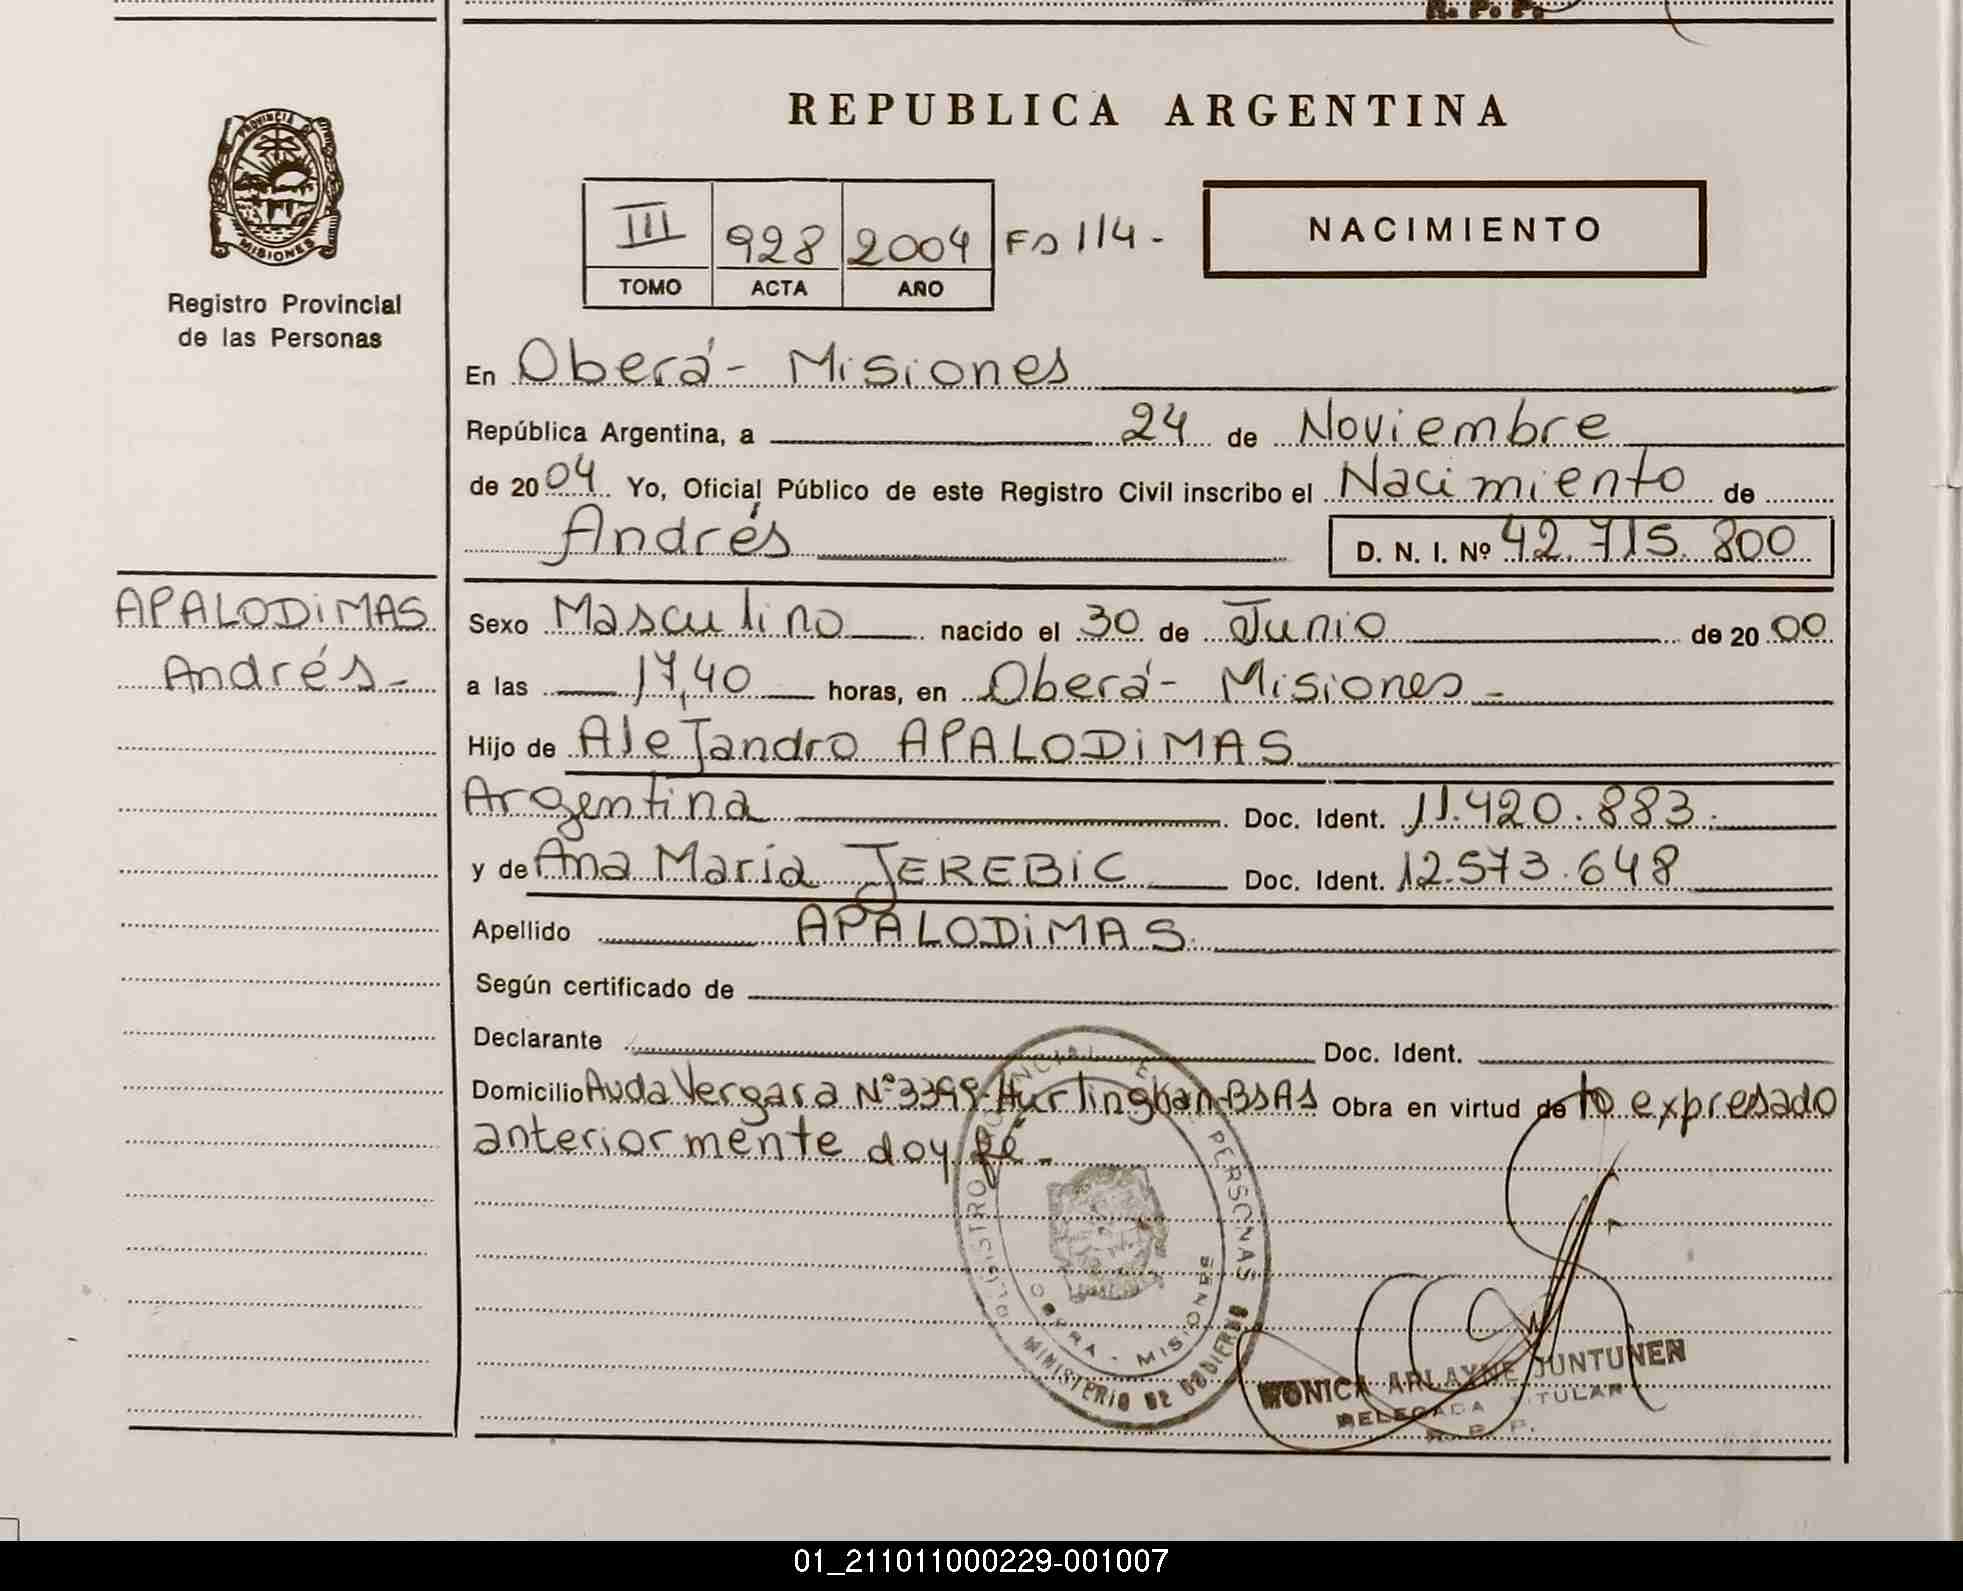 R. P. P.
REPUBLICA ARGENTINA
PROVINCIA DE
MISIONES
Registro Provincial
de las Personas
III 928 2004 Fo 114-
TOMO ACTA AÑO
NACIMIENTO
En Oberá- Misiones
República Argentina, a 24 de Noviembre
de 2004 Yo, Oficial Público de este Registro Civil inscribo el Nacimiento de
Andrés D. N. I. Nº 42.715.800
APALODiMAS
Andrés-
Sexo Masculino nacido el 30 de Junio de 2000
a las 17,40 horas, en Oberá- Misiones-
Hijo de Alejandro APALODiMAS
Argentina Doc. Ident. 11.420.883.
y de Ana María JEREBiC Doc. Ident. 12.573.648
Apellido APALODiMAS.
Según certificado de
Declarante Doc. Ident.
Domicilio Avda Vergara Nº 3399-Hurlinghan-BsAs Obra en virtud de lo expresado
anteriormente doy fé-
REGISTRO PROVINCIAL DE LAS PERSONAS
OBERA - MISIONES
MINISTERIO DE GOBIERNO
MONICA ARLAYNE JUNTUNEN
DELEGADA TITULAR
R. P. P.
01_211011000229-001007